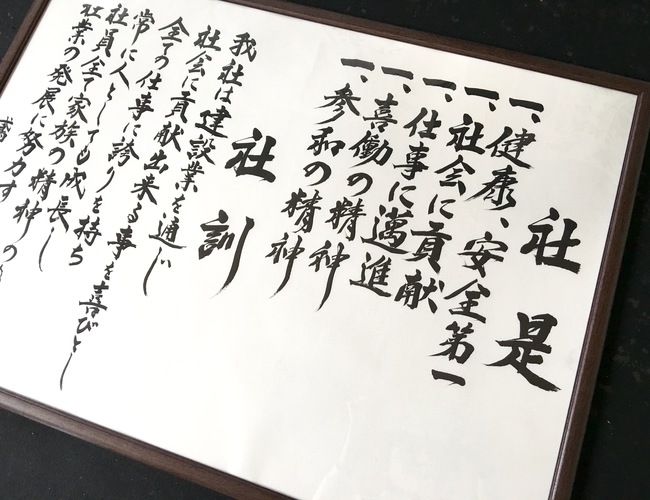 社是
一、健康、安全第一
一、社会に貢献
一、仕事に邁進
一、喜働の精神
一、参和の精神
社訓
我社は建設業を通じ
社会に貢献出来る事を喜びとし
全ての仕事に誇りを持ち
常に人としても成長し
社員全て家族の精神の
社業の発展に努力す